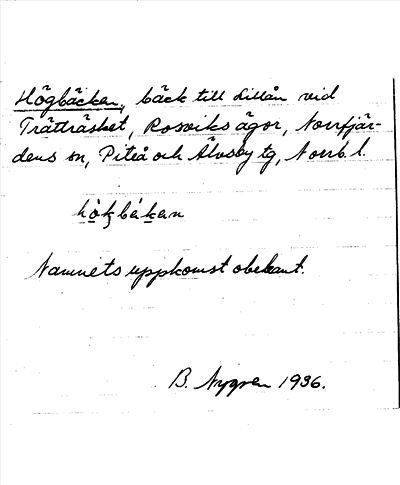 Högbäcken, bäck till Lillån vid
Trätträsket, Rosviks ägor, Norrfjär-
dens sn, Piteå och Älvsby tg, Norrb. l.
Namnets uppkomst obekant.
B. Nygren 1936.